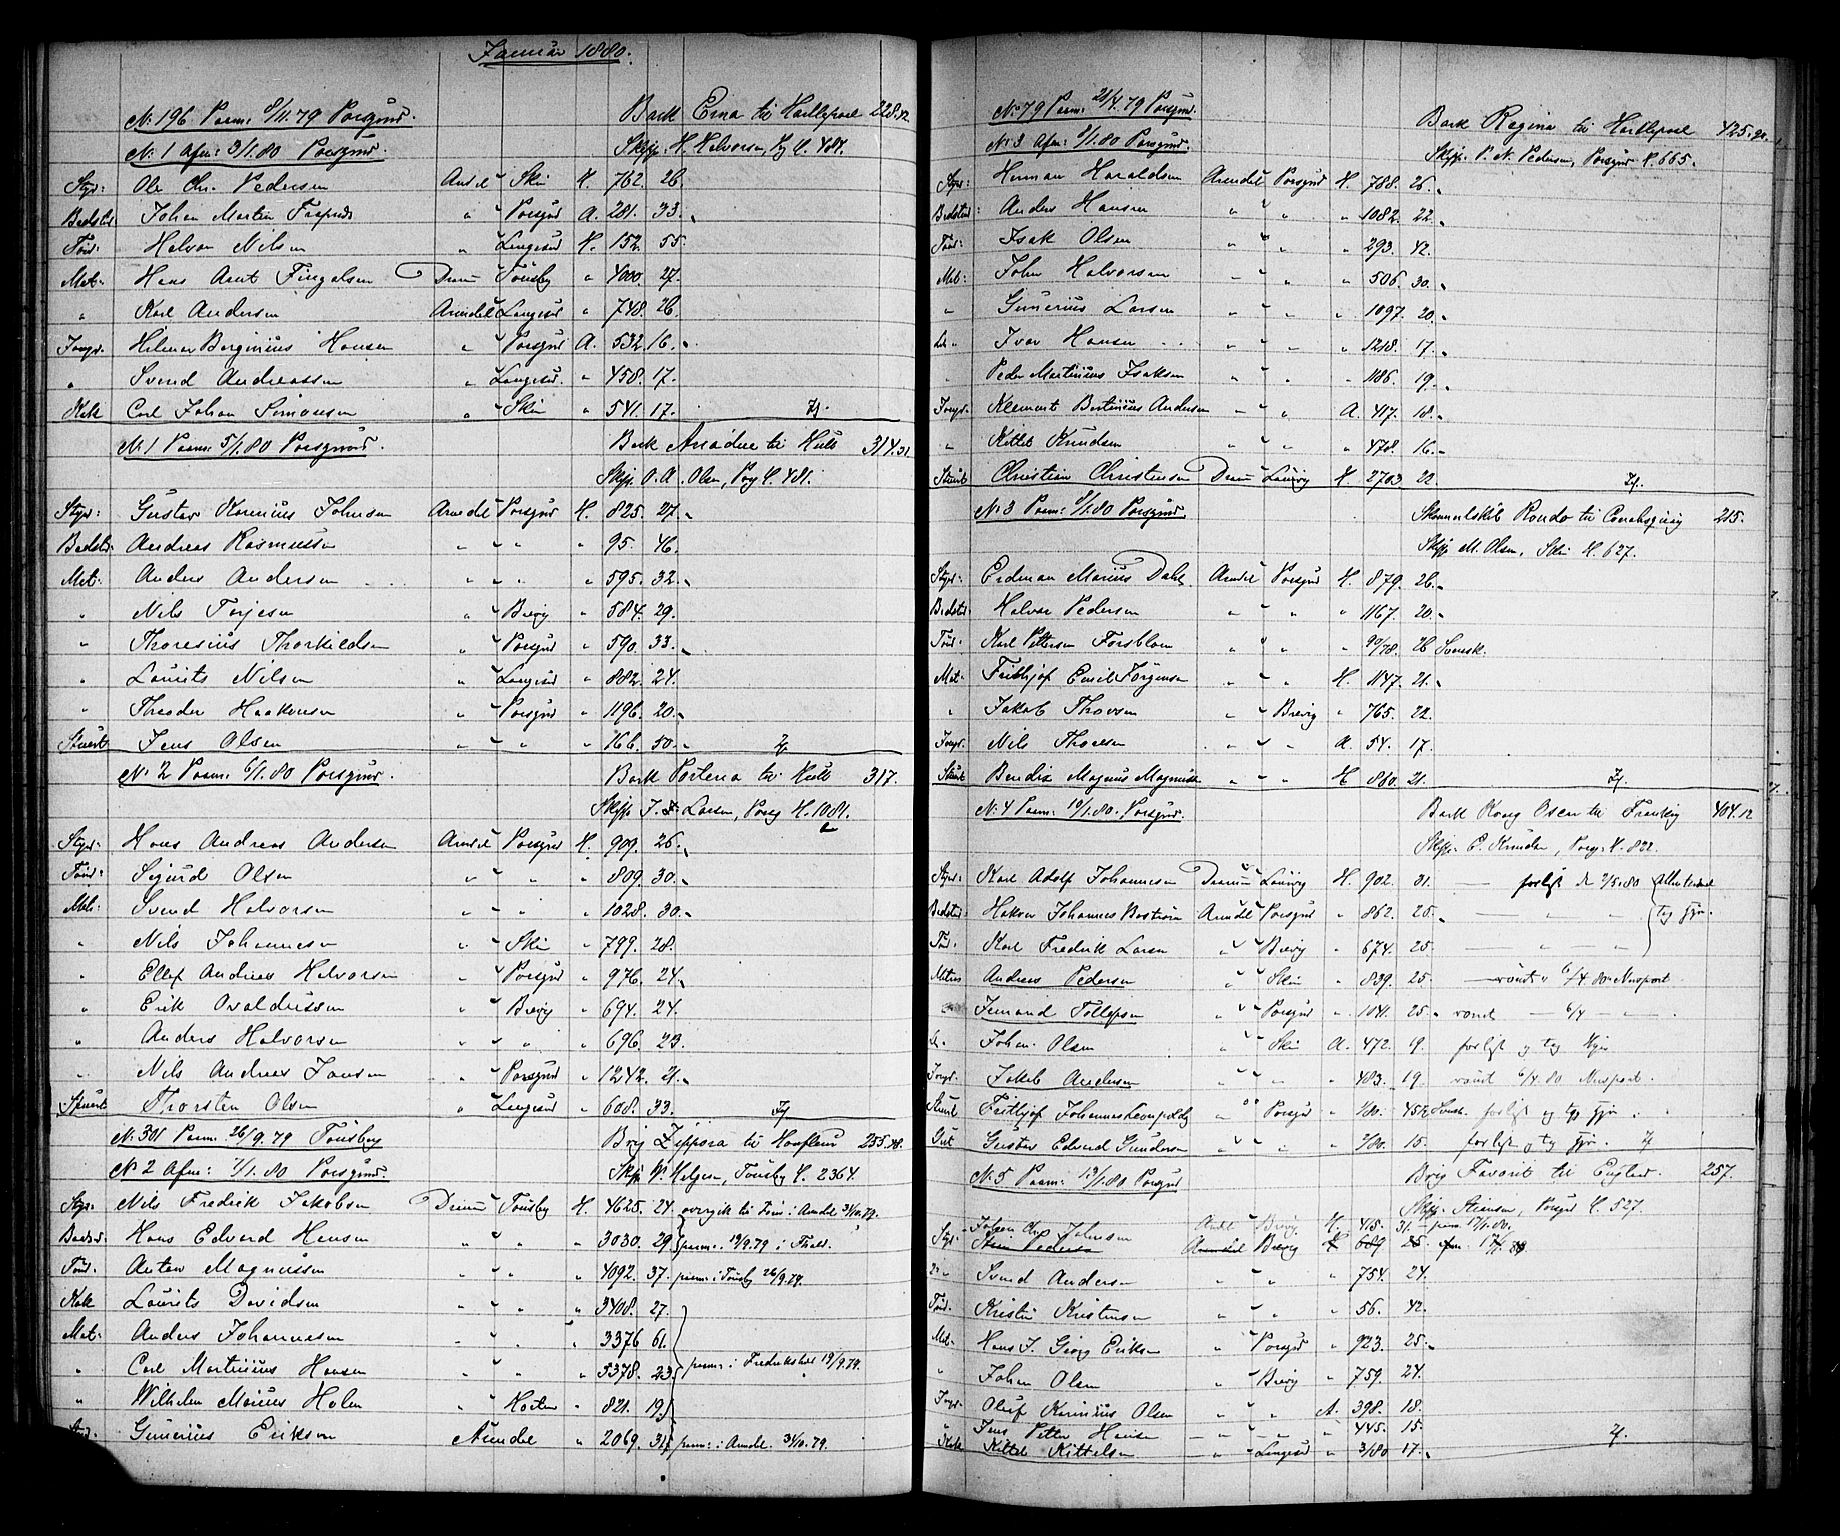 Januar 1880.
No. 196 Paam: 8/11.79 Porsgrund. Bark Erna til Hartlepool 228.72
No. 1 Afm: 3/1.80 Porsgrund. Skipp. H. Halvorsen, Pg C. 484.
Styr: Ole Chr. Pedersen Arndl " Skien H. 762. 26.
Bedstd. Johan Martin " " Porsgrd A. 281. 33.
Tørd: Halvor Nilsen " " Langesd H. 152. 55.
Mat: Hans Arnt Dram " Tønsbg " 4000. 27.
" Karl Andersen Arndl " Langesd " 748. 26.
Jungr. Hilmar Berginius Hansen " " Porsgrd A. 532. 16.
" Svend Andreassen " " Langesd. " 458. 17.
Kok Carl Johan Simonsen " " Skien " 541. 17.
No. 1 Paam: 5/1.80 Porsgrund. Bark Ariadne til Hull 314.31
Skipp. O. A. Olsen, Porsg C. 481.
Styr: Gustav Karinius Johnsen Arndl " Porsgrd H. 825. 27.
Bedstd: Andreas Rasmussen " " " " 95. 46.
Mat: Anders Andersen " " " " 595. 32.
" Nils Torjesen " " Brevig " 584. 29.
" Thoresius Thorkildsen " " Porsgrd " 590. 33.
" Laurits Nilsen " " Langesd " 882. 24.
" Theodor Haakonsen " " Porsgrd " 1196. 20.
Stuert Jens Olsen " " " " 166. 50.
No. 2 Paam: 6/1.80 Porsgrund. Bark til Hull 317.
Skipp. J. Larsen, Porsg H. 1081.
Styr: Hans Andreas Andersen Arndl " Porsgrd H. 909. 26.
Tørd: Sigurd Olsen " " " " 809. 30.
Mat: Svend Halvorsen " " " " 1028. 30.
" Nils Johannesen " " Skien " 799. 28.
" Ellef Andreas Halvorsen " " Porsgrd " 976. 24.
" Erik Osuldsen " " Brevig " 694. 24.
" Anders Halvorsen " " " " 696. 23.
" Nils Andreas Jansen " " Porsgrd " 1242. 21.
Stuert Thorsten Olsen " " Langesd " 608. 33.
No. 301 Paam. 26/9.79 Tønsberg Brig Zippora til Honfleur 255.
No. 2 Afm: 7/1.80 Porsgrund. Skipp. Helgesen, Tønsbg C. 2364.
Styr: Nils Fredrik Jakobsen Dram " Tønsbg H. 4625. 24.
Bedstd. Hans Edvard Hansen " " " 3030. 29 paam: 19/9.79 i Fhald.
Tørd: Anton Magnussen " " " 4092. 37. paam: i Tønsbg 26/9.79.
Kok Laurits Davidsen " " " " 3408. 27.
Mat: Anders Johannesen " " " 3376 61.
" Carl Martinius Hansen " " " 5378. 23. paam: i Fredrikshald 19/9.79.
" Wilhelm Marius Holm " " Horten " 821. 19.
Gunerius Eriksen Arndl " 2069. 31. paam: i Arndl. 31/10.79.
No. 79 Paam: 21/4.79 Porsgrd. Bark Regina til Hartlepool 425.
No. 3 Afm: 8/1.80 Porsgrund. Skipp. P. N. Pedersen, Porsgrd H. 665.
Styr: Herman Haraldsen Arndl " Porsgrd H. 788. 26.
Bedstd: Anders Hansen " " " " 1082. 22.
Tørd: Isak Olsen " " " " 293. 42.
Mat: Johan Halvorsen " " " " 506. 30.
" Gunerius Larsen " " " " 1097. 20.
" Ivar Hansen " " " " 1218. 17.
" Peder Martinius Isaksen " " " " 1186. 19.
Jungr. Klement Bertinius Andersen " " " A. 417. 18.
" Kittil Knudsen " " " " 478. 16.
Stuert Christian Christensen Dram " Laurvig H. 2703 22
No. 3 Paam: 8/1.80 Porsgrund. Skonnertskib Rondo til 215.
Skipp. M. Olsen, Skien H. 627.
Styr: Erdman Marius Dahl Arndl " Porsgrd H. 879. 26.
Bedstd: Halvor Pedersen " " " " 1167. 20.
Tørd: Karl Pettersen Forsblom " " " 90/78. 26 Svensk.
Mat: Fritthjof Emil Jørgensen " " " H. 1147. 21.
" Jakob Thovsen " " Brevig " 765. 22.
Jungr. Nils Thorsen " " " A. 54. 17.
Stuert Bendix Magnus Magnussen " " " H 860. 21.
No. 4 Paam: 10/1.80. Porsgrund. Bark Kong Oscar til 404.12
Skipp. C. Knudsen, Porsg. H. 822.
Styr: Karl Adolf Johannesen Dram " Laurvig H. 902. 31. — forligt d 2/5.80
Bedstd Hakon Johannes Arndl " Porsgrd " 862. 25.
Tørd. Karl Fredrik Larsen " " Brevig " 674. 25.
Matros Andreas Pedersen " " Skien " 839. 25. — rømt 6/4.80 Newport
Tollefsen " " Porsgrd " 1041. 25. rømt — 6/4 —
Johan Olsen " " Skien A. 472. 19. forligt og tog Hyre
Jungr. Jakob Andersen " " " 483. 19. rømt 6/4.80 Newport.
Stuert Fritthjof Johannes " " Porsgrd " 1/80. 45 Svensk. forligt og tog Hyre
Gut Gustav Edvard Gundersen " " " 2/80. 15. forligt og tog Hyre.
No. 5 Paam: 12/1.80 Porsgrd Brig Favorit til England. 257.
Skipp. Porsgrd C. 527.
Styr. Johan Chr. Johnsen Arndl " Brevig H. 415. 31. paam 17/1.80.
Stian Pedersen Arendal " Brevig H 689 25
" Svend Andersen " " " " 754. 24.
Tørd. Kristen Kristensen " " " " 56. 42.
Mat. Hans J. Georg Eriksen " " Porsgrd " 923. 25.
" Johan Olsen " " Brevig " 759. 24.
Jungr. Oluf Karinius Olsen " " " A. 398. 18.
" Jens Petter Hansen " " " " 445. 15.
Kok Kittil Kittelsen " " Langesd " 3/80 17.